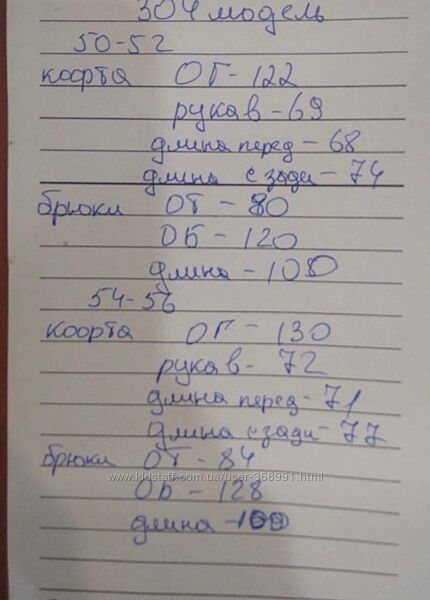 304 модель
50-52
кофта ОГ-122
рукав-69
длина перед-68
длина сзади-74
брюки ОТ-80
ОБ-120
длина-100
54-56
кофта ОГ-130
рукав-72
длина перед-71
длина сзади-77
брюки ОТ-84
www.kidstaff.com.ua/user-368991.html
ОБ-128
длина-100